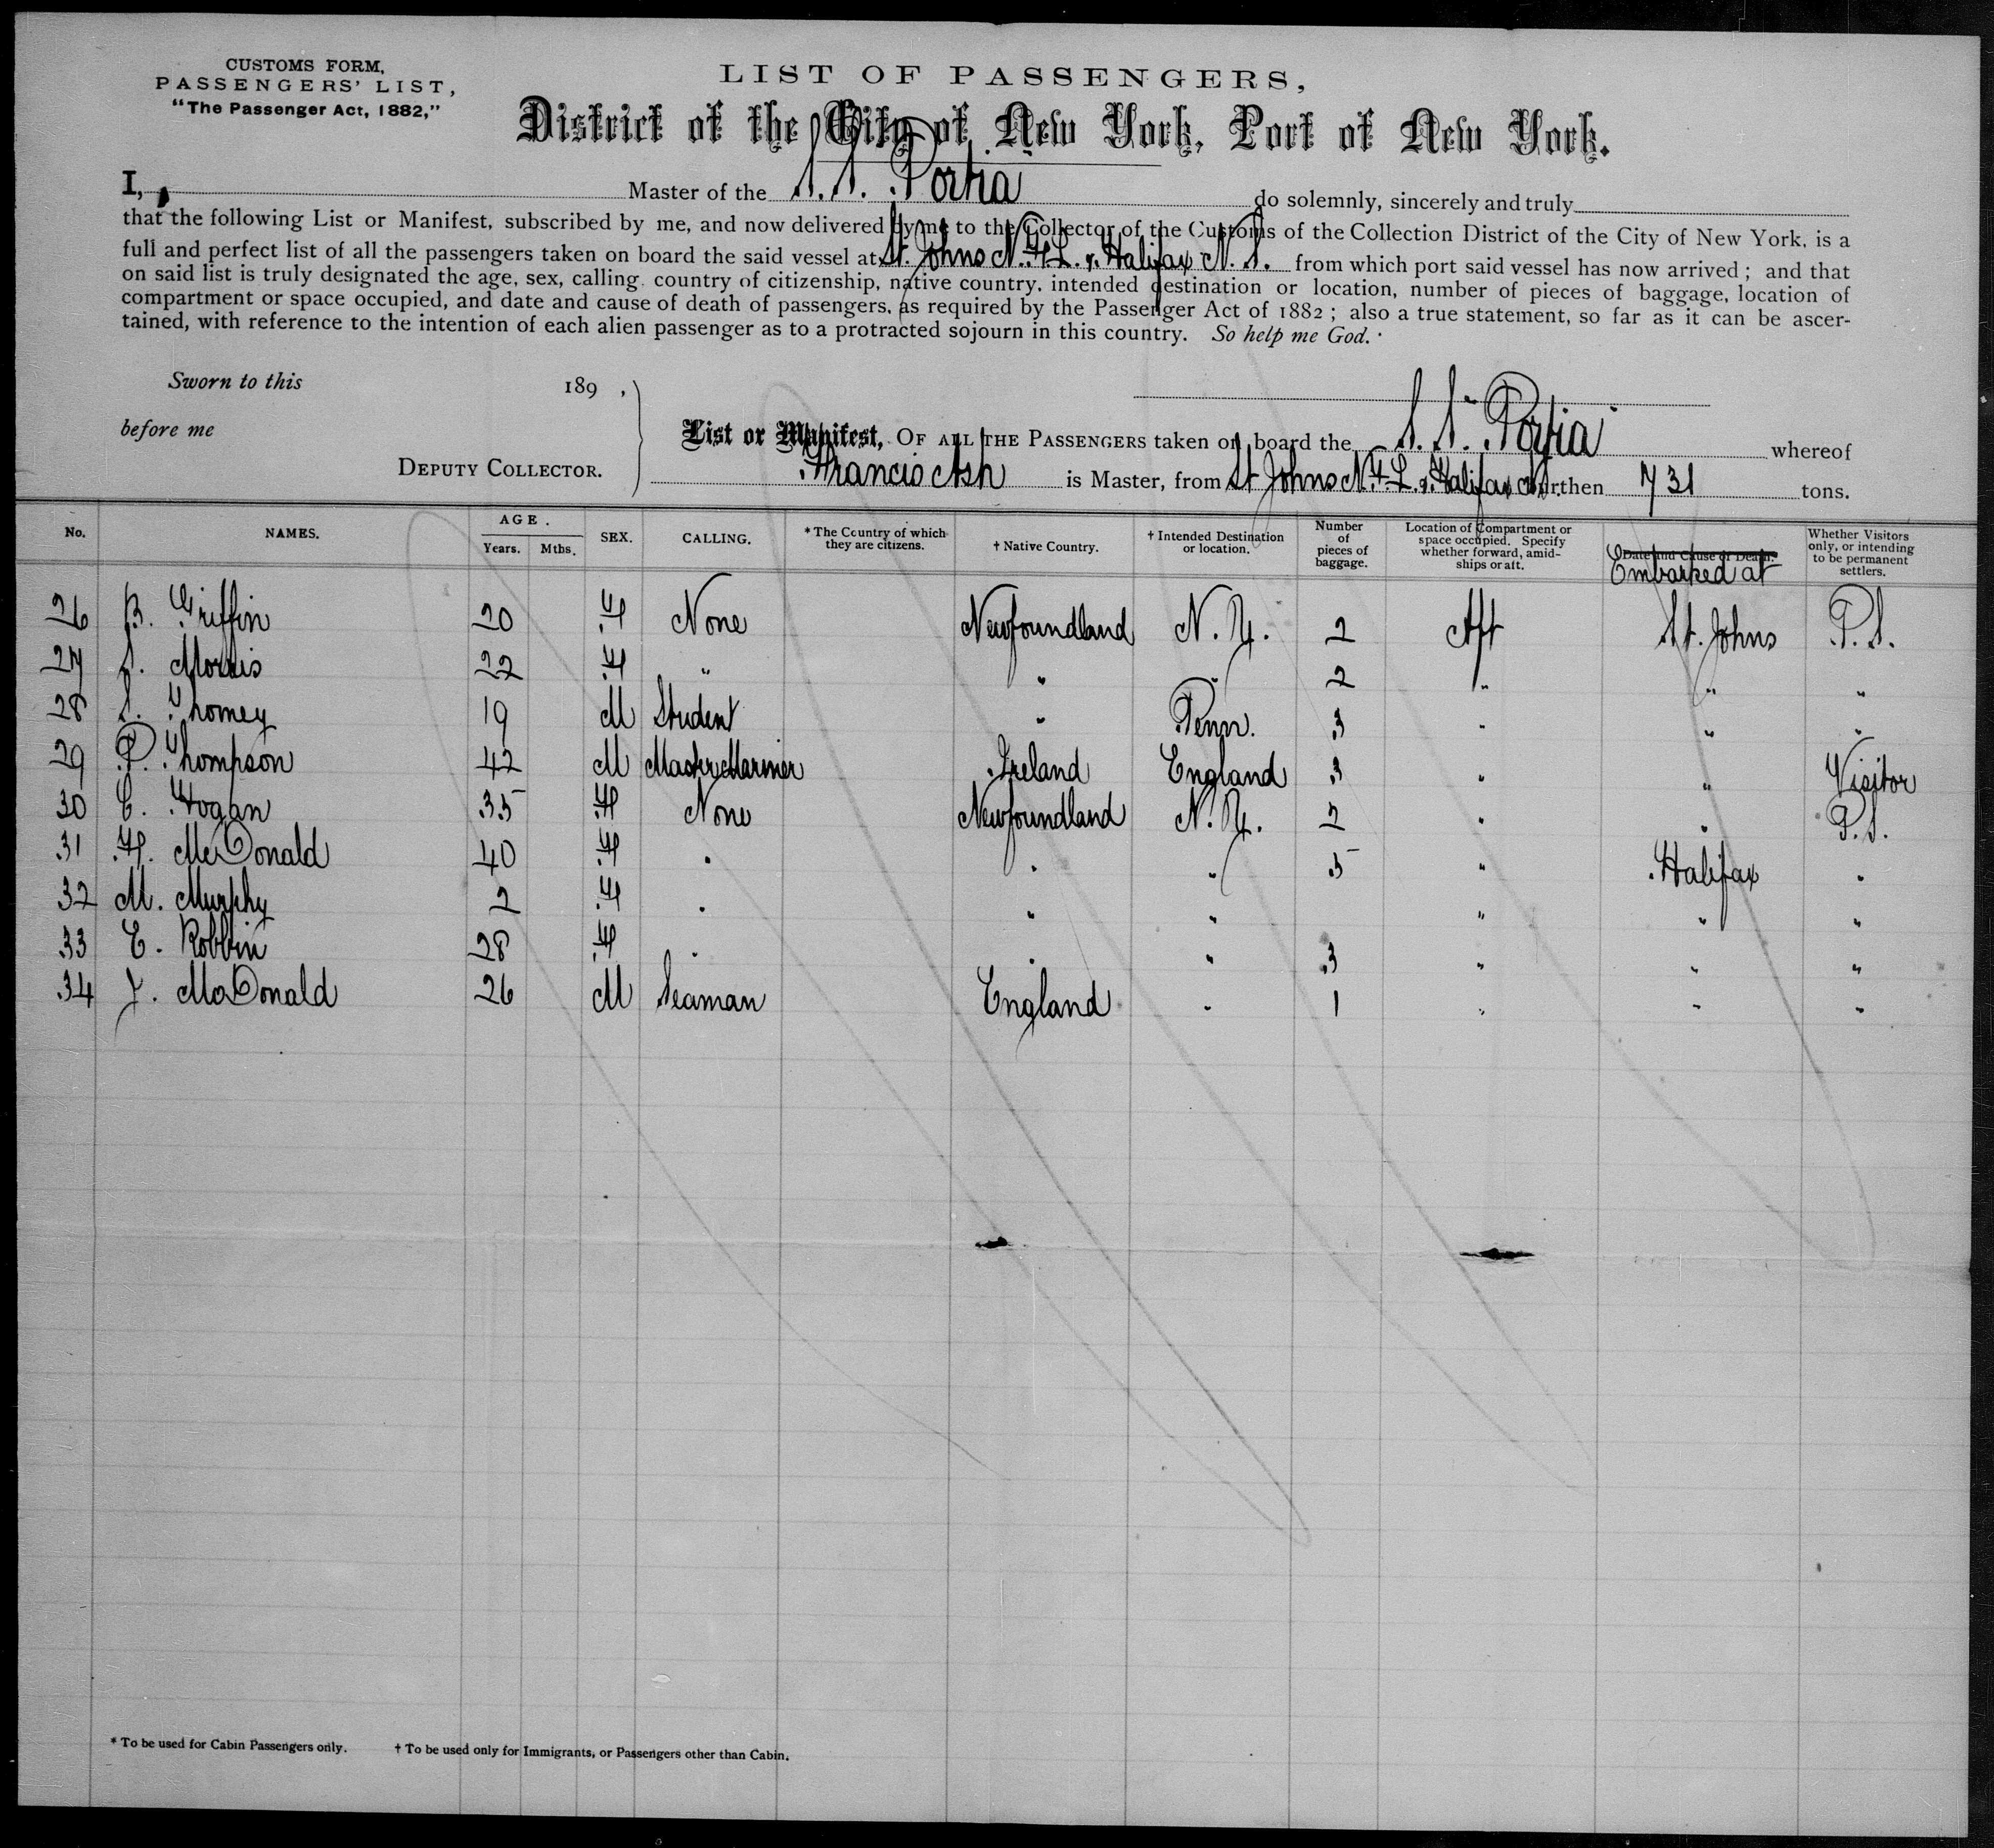 CUSTOMS FORM,
PASSENGERS' LIST,
"The Passenger Act, 1882,"
LIST OF PASSENGERS,
District of the City of New York, Port of New York.
I, Master of the S.S. Portia do solemnly, sincerely and truly
that the following List or Manifest, subscribed by me, and now delivered by me to the Collector of the Customs of the Collection District of the City of New York, is a
full and perfect list of all the passengers taken on board the said vessel at St. Johns N.F.L. & Halifax N.S. from which port said vessel has now arrived; and that
on said list is truly designated the age, sex, calling, country of citizenship, native country, intended destination or location, number of pieces of baggage, location of
compartment or space occupied, and date and cause of death of passengers, as required by the Passenger Act of 1882; also a true statement, so far as it can be ascer-
tained, with reference to the intention of each alien passenger as to a protracted sojourn in this country. So help me God.
Sworn to this 189 ,
before me
DEPUTY COLLECTOR.
List or Manifest, OF ALL THE PASSENGERS taken on board the S.S. "Portia" whereof
Francis Ash is Master, from St Johns N.F.L. & Halifax N.S. burthen 731 tons.
No. NAMES. AGE. Years. Mths. SEX. CALLING. * The Country of which they are citizens. † Native Country. † Intended Destination or location. Number of pieces of baggage. Location of Compartment or space occupied. Specify whether forward, amid-ships or aft. Date and Cause of Death. Embarked at Whether Visitors only, or intending to be permanent settlers.
26 B. Griffin 20 F None Newfoundland N.Y. 2 Aft St. Johns P.S.
27 S. Morris 22 F " " " 2 " " "
28 S. Thomey 19 M Student " Penn. 3 " " "
29 P. Thompson 42 M Master Mariner Ireland England 3 " " Visitor
30 C. Hogan 35 F None Newfoundland N.Y. 2 " " P.S.
31 F. McDonald 40 F " " " 5 " Halifax "
32 M. Murphy 2 F " " " " " "
33 E. Robbin 28 F " " " 3 " " "
34 J. McDonald 26 M Seaman England " 1 " " "
* To be used for Cabin Passengers only. † To be used only for Immigrants, or Passengers other than Cabin.